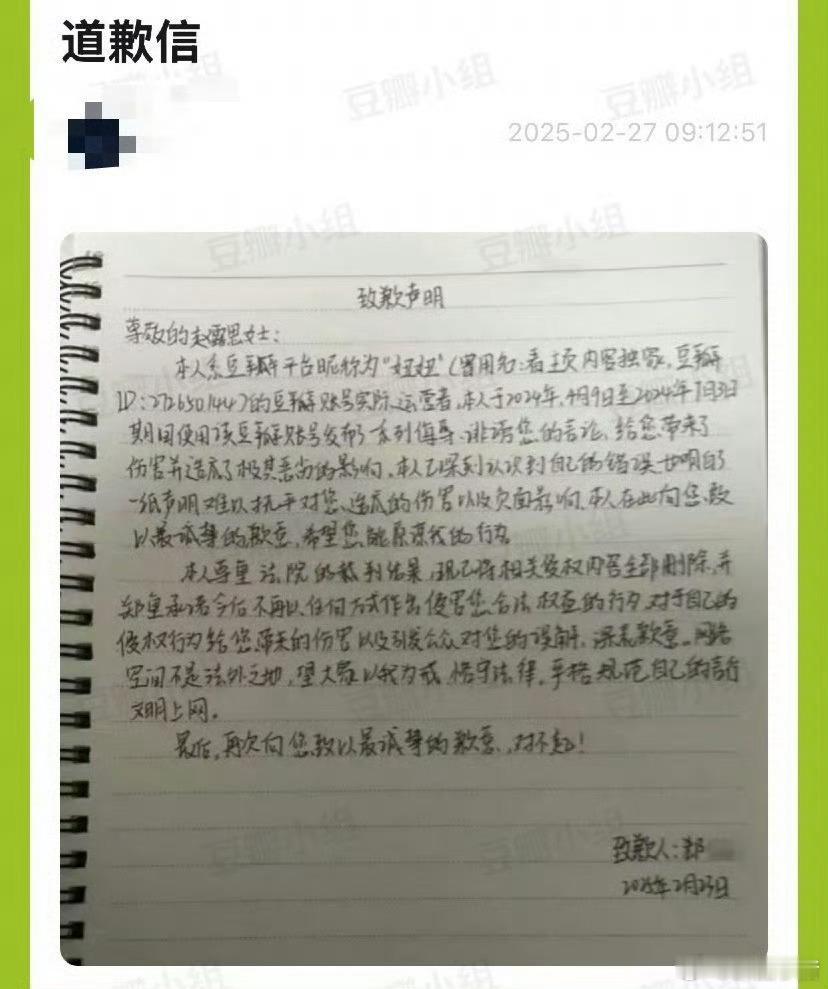 道歉信
2025-02-27 09:12:51
致歉声明
尊敬的赵露思女士:
本人系豆瓣平台昵称为"妞妞"(曾用名:看主页内容独家,豆瓣
ID:272650144)的豆瓣账号实际运营者,本人于2024年4月9日至2024年7月3日
期间使用该豆瓣账号发布了系列侮辱、诽谤您的言论,给您带来了
伤害并造成了极其恶劣的影响。本人已深刻认识到自己的错误,也明白了
一纸声明难以抚平对您造成的伤害以及负面影响,本人在此向您致
以最诚挚的歉意,希望您能原谅我的行为
本人尊重法院的裁判结果,现已将相关侵权内容全部删除,并
郑重承诺今后不再以任何方式作出侵害您合法权益的行为,对于自己的
侵权行为给您带来的伤害以及引发公众对您的误解,深表歉意。网络
空间不是法外之地,望大家以我为戒,恪守法律,严格规范自己的言行
文明上网。
最后,再次向您致以最诚挚的歉意,对不起!
致歉人:郑
2025年2月23日
豆瓣小组
豆瓣小组
豆瓣小组
豆瓣小组